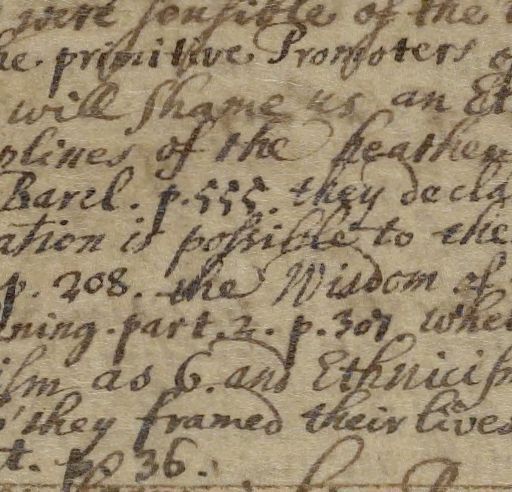 were sensible of the
he primitive Promoters
will shame us an Et
plines of the heathen
Barcl. p. 555. they decla
ation is possible to the
p. 208. the Wisdom of
ning. part. 2. p. 307 whe
ism as 6. and Ethnicism
they framed their lives
t. p. 36.